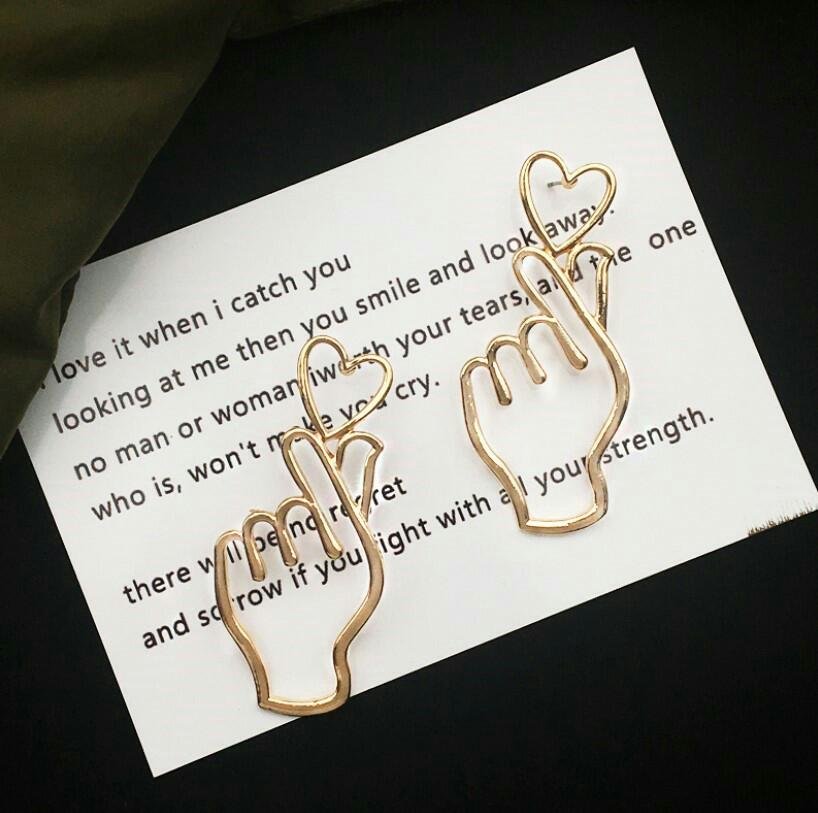 I love it when i catch you
looking at me then you smile and look away.
no man or woman iworth your tears, and the one
who is, won't make you cry.
there will be no regret
and sorrow if you fight with all your strength.